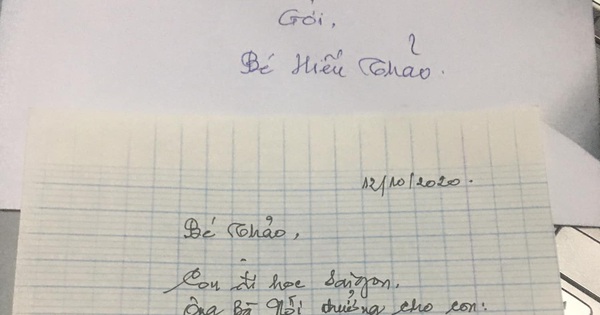 Gởi,
Bé Hiếu Thảo.
12/10/2020.
Bé Thảo,
Con đi học Saigon.
Ông Bà Nội thưởng cho con: